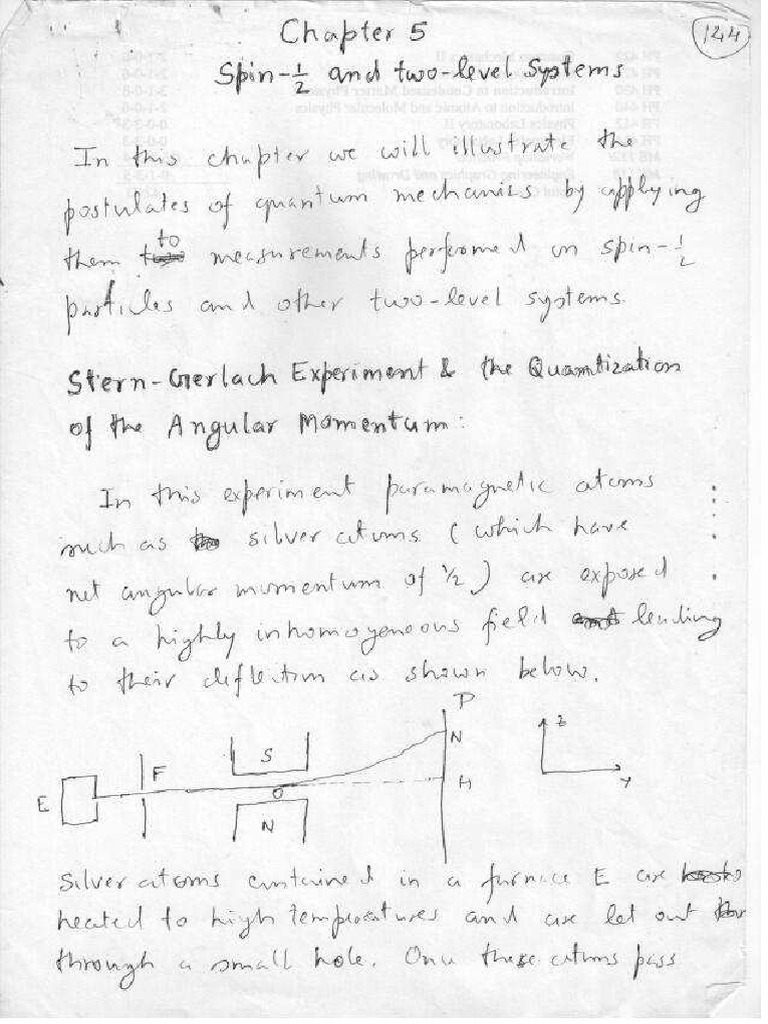 Chapter 5
124
Spin-1/2 and two-level Systems
In this chapter we will illustrate the
postulates of quantum mechanics by applying
them to measurements performed on spin-1/2
particles and other two-level systems.
Stern-Gerlach Experiment & the Quantization
of the Angular Momentum:
In this experiment paramagnetic atoms
such as silver atoms (which have
net angular momentum of 1/2) are exposed
to a highly inhomogeneous field leading
to their deflection as shown below.
P
S
N
z
F
E
O
H
Y
N
Silver atoms contained in a furnace E are
heated to high temperatures and are let out
through a small hole. Once these atoms pass